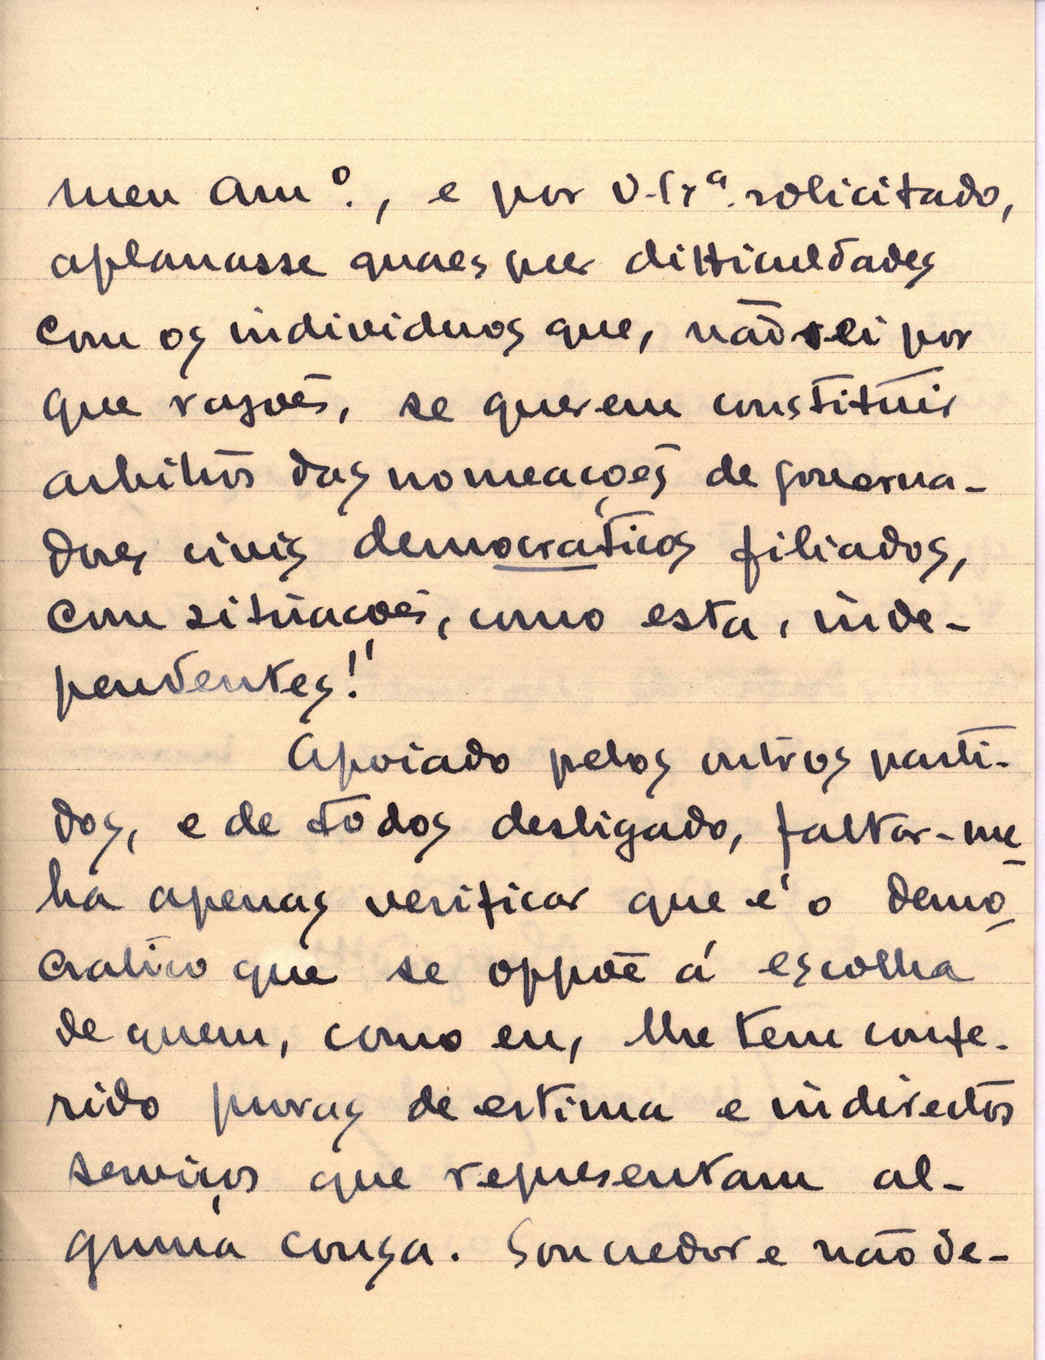 meu Am.º, e por V. Ex.ª solicitado,
aplanasse quaesquer difficuldades
com os individuos que, não sei por
que rasões, se querem constituir
arbitros das nomeações de governa-
dores civis democraticos filiados,
com situações, como esta, inde-
pendentes!
Apoiado pelos outros parti-
dos, e de todos desligado, faltar-me-
ha apenas verificar que é o demo-
cratico que se oppõe á escolha
de quem, como eu, lhe tem confe-
rido provas de estima e indirectos
serviços que representam al-
guma cousa. Sou credor e não de-